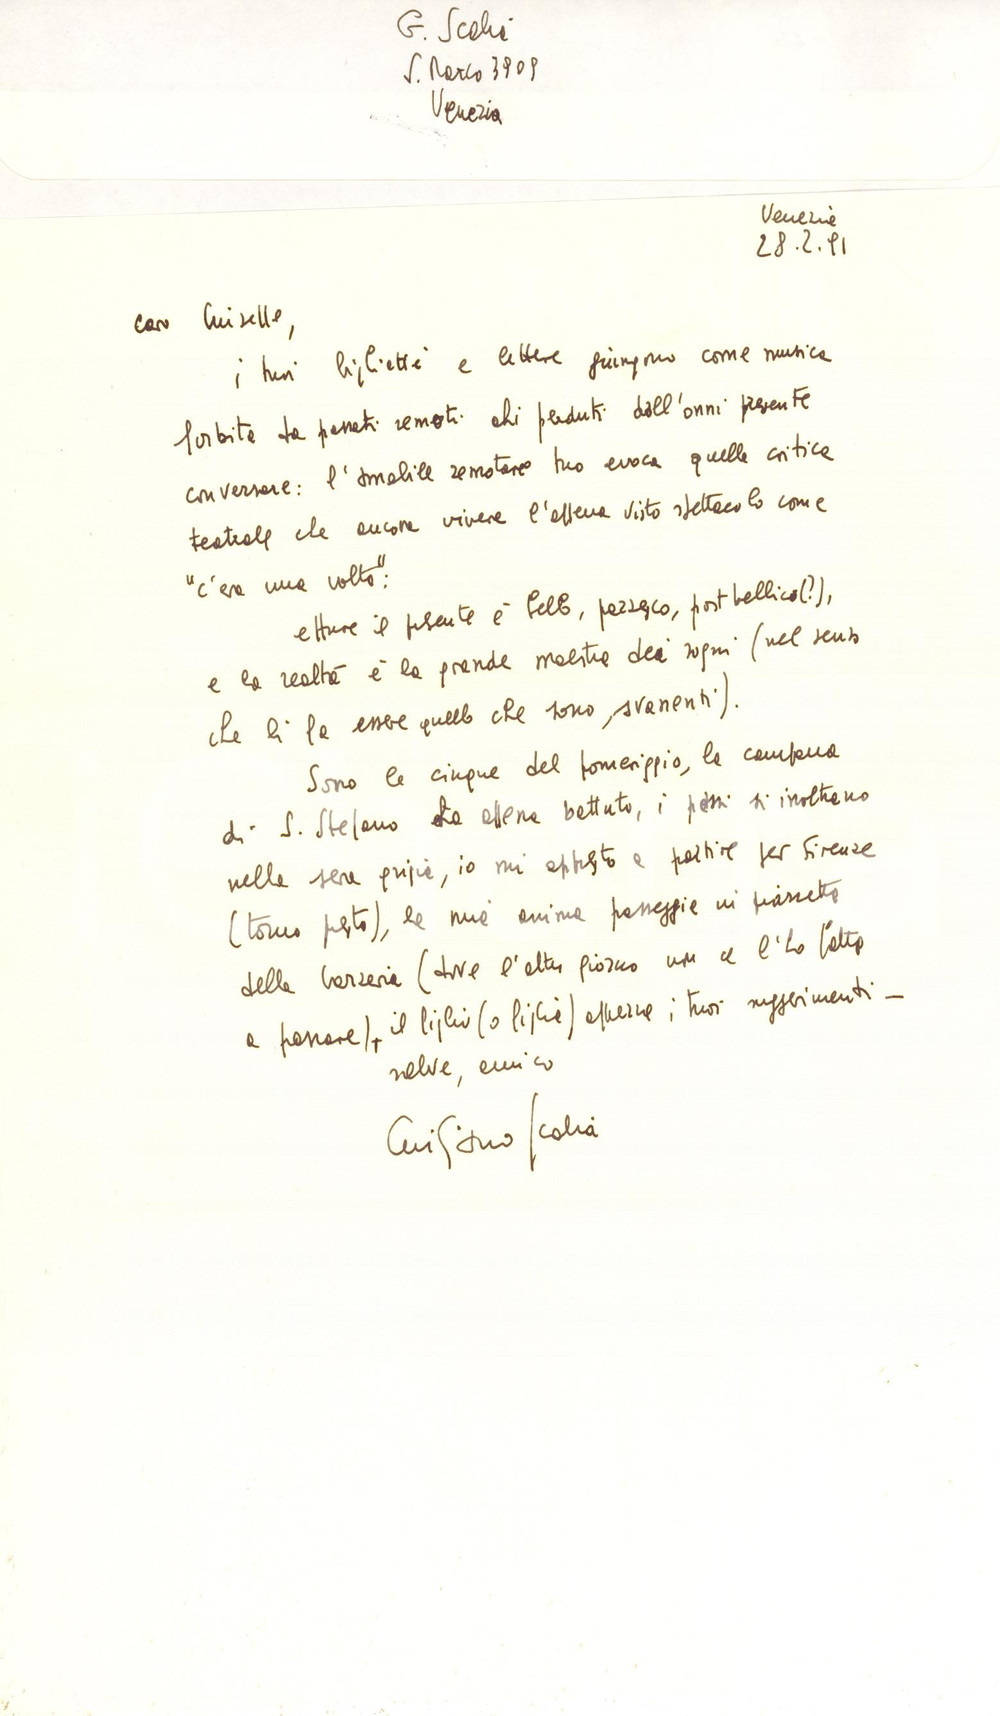 G. Scabia
S. Marco 3909
Venezia
Venezia
28.2.91
caro Chiselle,
i tuoi biglietti e lettere giungono come musica
forbita da passati remoti chi perduti dall'onni presente
conversare: l'amabile remotare tuo evoca quella critica
teatrale che ancora vivere l'appena visto spettacolo come
"c'era una volta":
eppure il presente è bello, pazzesco, post bellico(?),
e la realtà è la grande maestra dei sogni (nel senso
che li fa essere quello che sono, svanenti).
Sono le cinque del pomeriggio, la campana
di S. Stefano ha appena battuto, i passi si inoltrano
nella sera grigia, io mi appresto a partire per Firenze
(torno presto), la mia anima passeggia in piazzetta
della (dove l'altro giorno non ce l'ho fatta
a passare), il figlio (o figlia) i tuoi suggerimenti –
salve, amico
Giuliano Scabia